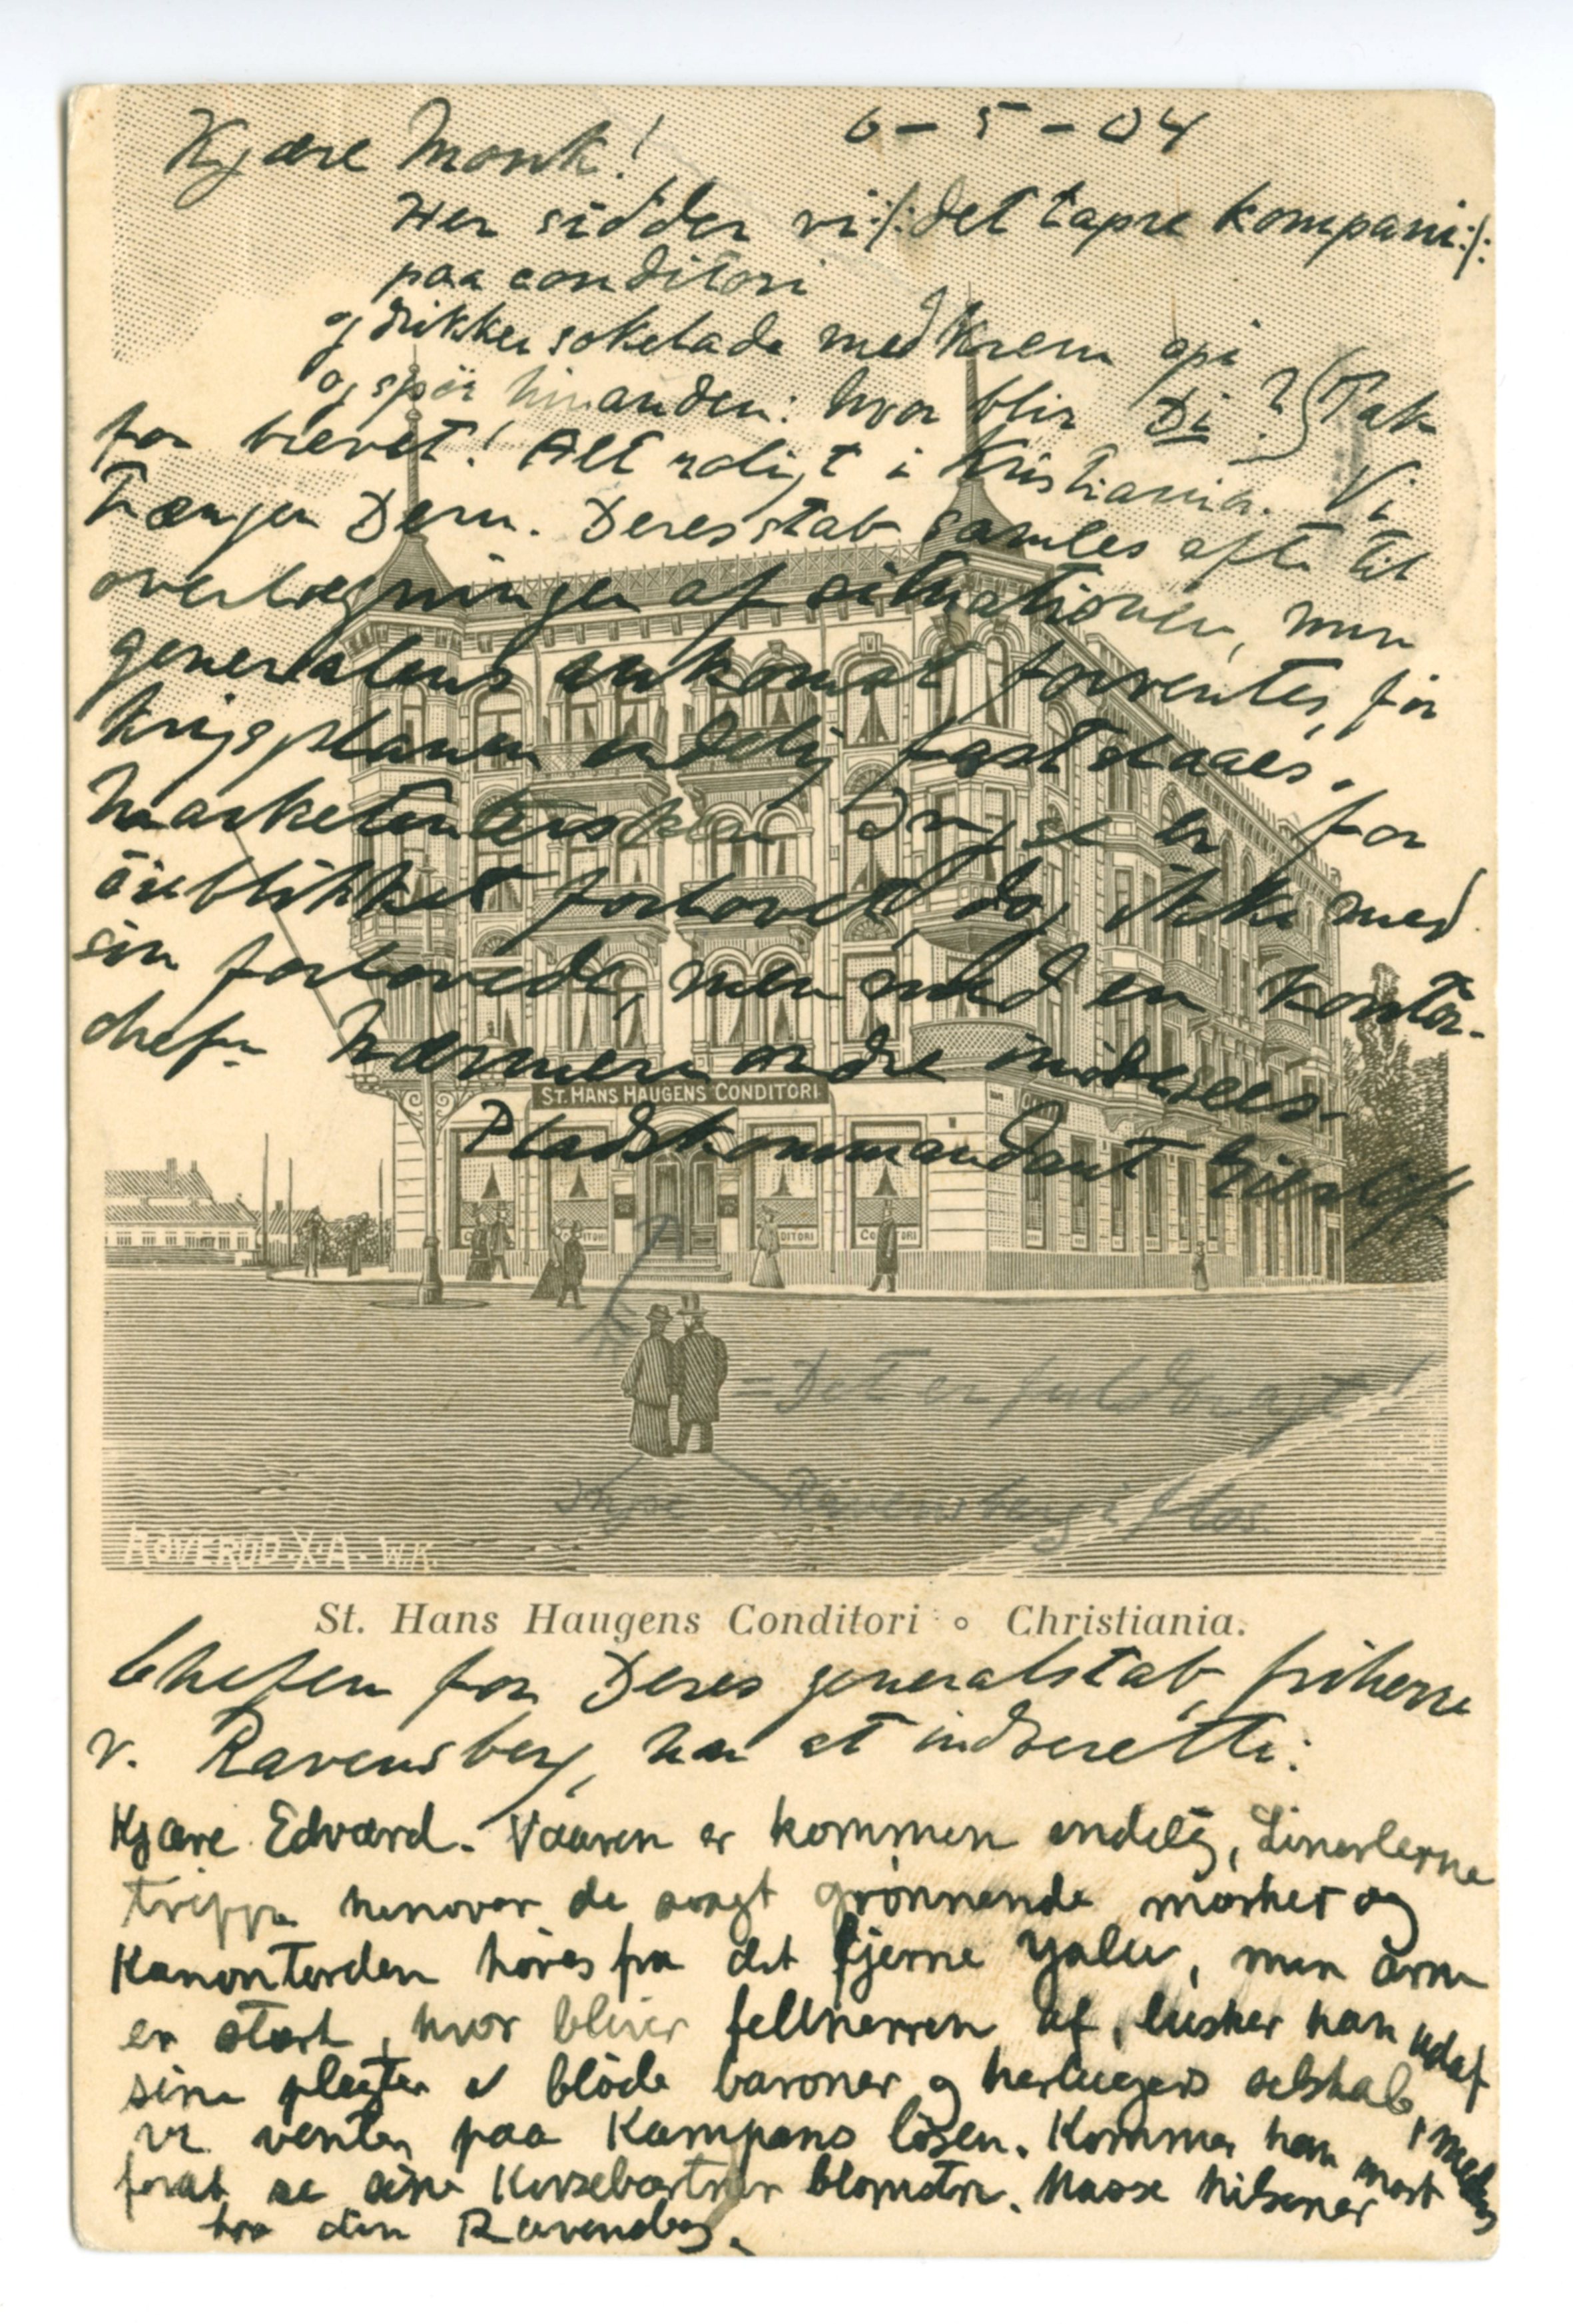 6-5-04
Kjære Munk!
Her sidder vi :/: det tapre kompani :/:
paa conditori
og drikker sokolade med krem opi
og spør hinanden: hvor blir Di? } Tak
for brevet! Alt roligt i Kristiania. Vi
trænger Dem. Deres stab samles ofte til
overlægninger af situationen, men
generalens ankomst forventes, før
krigsplanen endelig fastslaaes.
Marketentersken Inga er for
öieblikket forlovet, dog ikke med
sin forlovede, men med en kontor-
chef. Nærmere ordre imödesees.
Pladskommandant
ST. HANS HAUGENS CONDITORI
CONDITORI
= Det er fuldbragt!
Ravensberg
HOVERUD. X.A. W.K.
St. Hans Haugens Conditori ∘ Christiania.
Chefen for Deres generalstab, friherre
v. Ravensberg, har at indberette:
Kjære Edvard. Vaaren er kommen endelig, Linerlerne
trippe henover de svagt grønnende marker og
Kanontorden høres fra det fjerne Yalu, men
er stærk, hvor bliver feltherren af, lusker han udaf
sine pligter i bløde baroner og hertugers selskab,
vi venter paa Kampens løsen. Kommer han
forat se sine Kirsebærtrær blomstre. Masse hilsener
fra din Ravensberg.